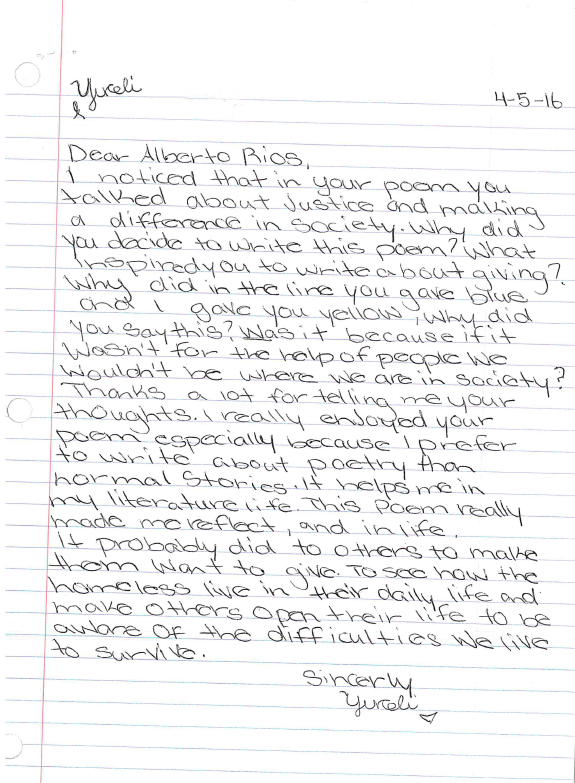 Yuceli
4-5-16
Dear Alberto Rios,
I noticed that in your poem you
talked about justice and making
a difference in society. Why did
you decide to write this poem? What
inspired you to write about giving?
Why did in the line you gave blue
and I gave you yellow, why did
you say this? Was it because if it
wasn't for the help of people we
wouldn't be where we are in society?
Thanks a lot for telling me your
thoughts. I really enjoyed your
poem especially because I prefer
to write about poetry than
normal stories. It helps me in
my literature life. This poem really
made me reflect, and in life.
It probably did to others to make
them want to give. To see how the
homeless live in their daily life and
make others open their life to be
aware of the difficulties we live
to survive.
Sincerly
Yuceli